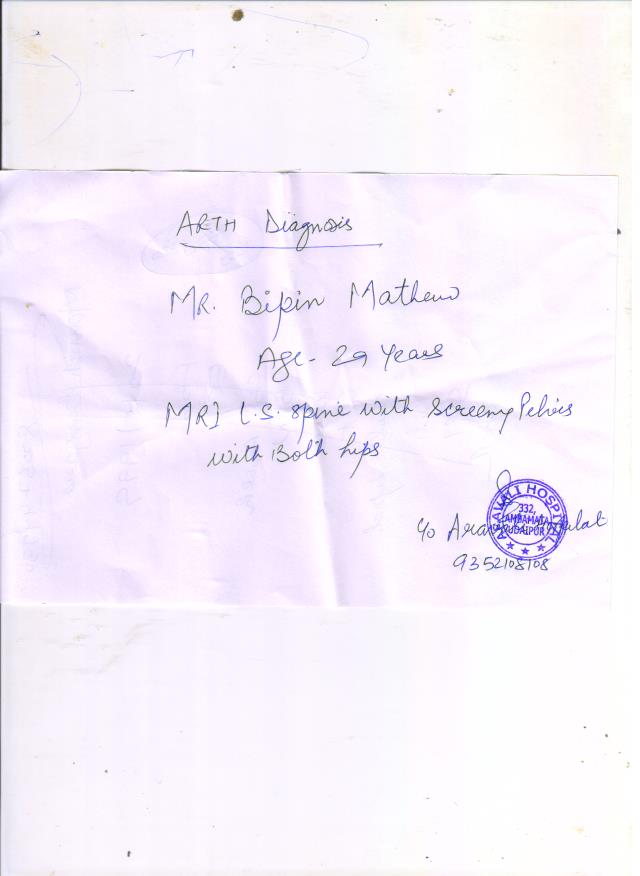 ARTH Diagnosis
MR. Bipin Mathew
Age - 29 Years
MRI L.S. Spine with Screeny Pelvis
with Both hips
ARAWALI HOSPITAL
332,
UDAIPUR
c/o
9352108108